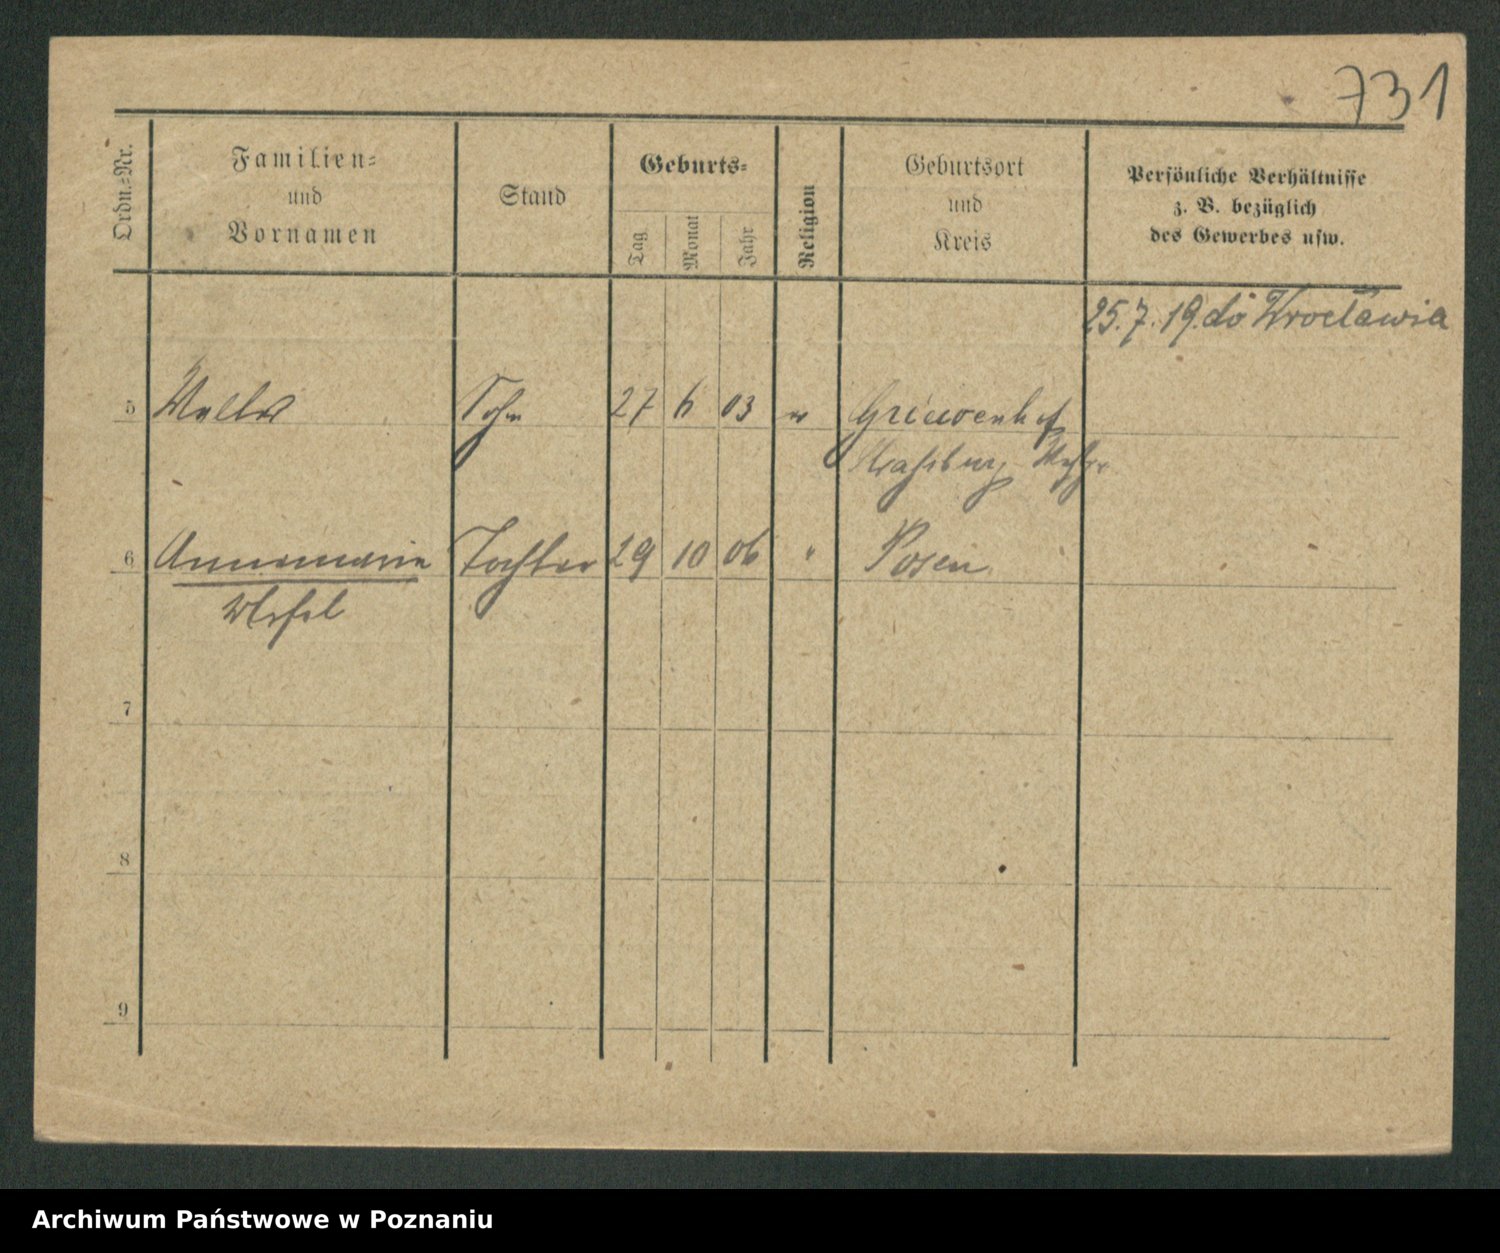 731
Ordn.-Nr.
Familien-
und
Vornamen
Stand
Geburts-
Tag
Monat
Jahr
Religion
Geburtsort
und
Kreis
Persönliche Verhältnisse
z. B. bezüglich
des Gewerbes usw.
25.7.19. do Wrocławia
5 Walter Sohn 27 6 03
Strasburg Wpr
6 Annemarie Tochter 29 10 06 " Posen
7
8
9
Archiwum Państwowe w Poznaniu